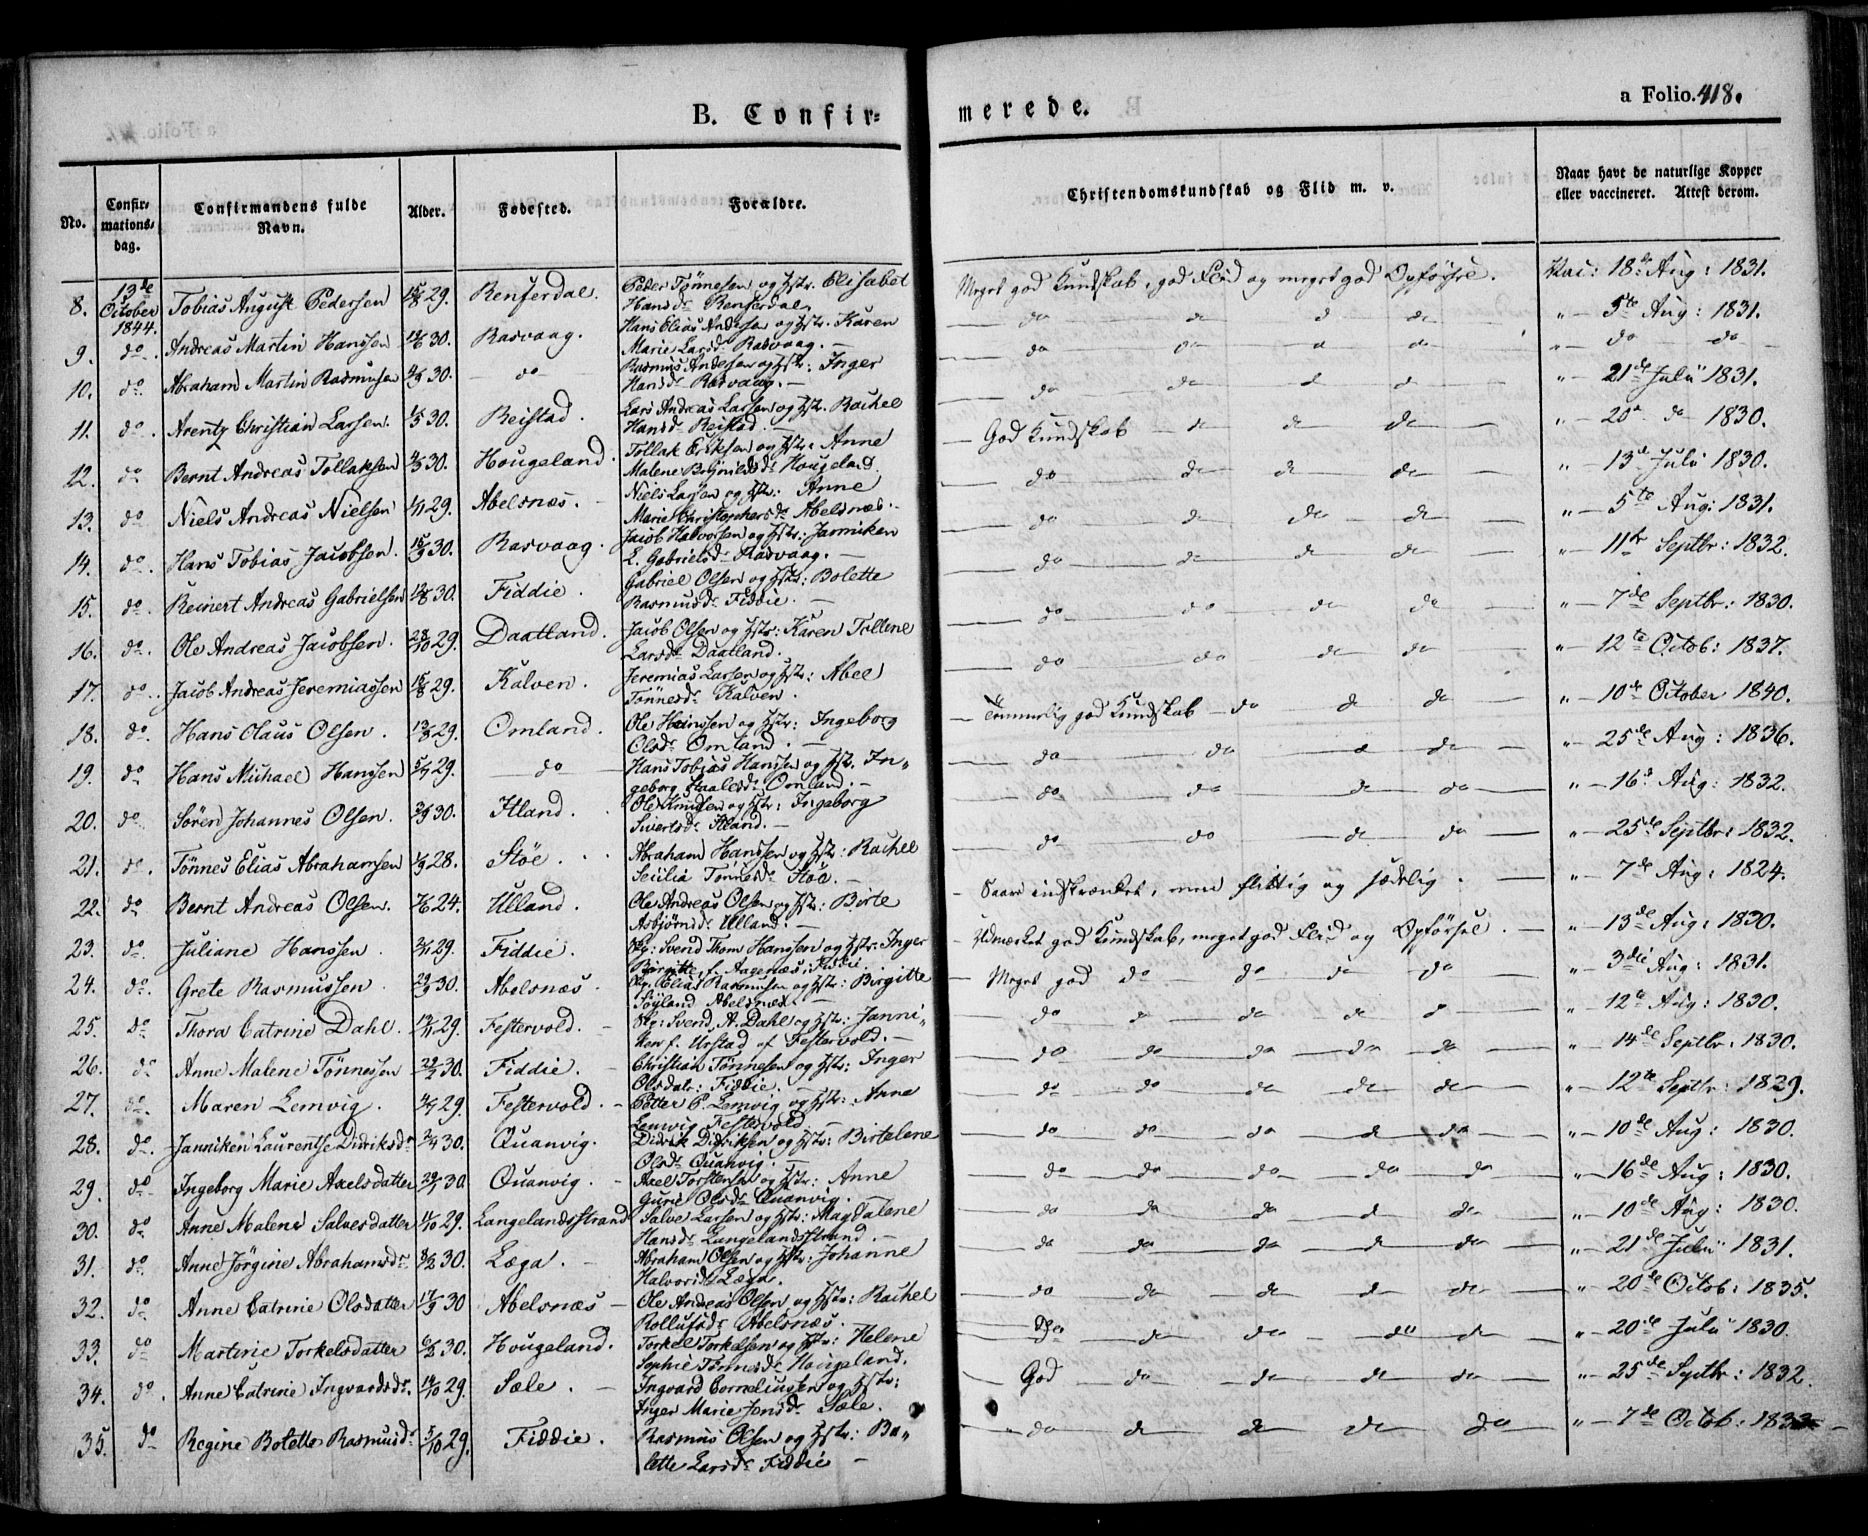 B. Confir=
merede.
a Folio. 418.
No.
Confir-
mations-
dag.
Confirmandens fulde
Navn.
Alder.
Fødested.
Forældre.
Christendomskundskab og Flid m. v.
Naar havt de naturlige Kopper
eller vaccineret. Attest derom.
8. 13de October 1844. Tobias August Pedersen 29. Renferdal. Peder Tønnesen og Hstr. Elisabet Hansdr Renferdal. Meget god Kundskab, god Flid og meget god Opførsel. Vac: 18de Aug: 1831.
9. do Andreas Martin Hanssen 30. Rasvaag. Hans Elias Andersen og Hstr. Karen Marie Larsdr Rasvaag. do do d do " 5te Aug: 1831.
10. do. Abraham Martin Rasmusen 30. do Rasmus Andersen og Hstr: Inger Hansdr Rasvaag. do do " do do
11. do. Arentz Christian Larsen. 30. Reistad. Lars Andreas Larsen og Hstr. Rachel Hansd Reistad. do do d d " 21de Julii 1831.
12. do Bernt Andreas Tollaksen 30. Hougeland. Tollak Eriksen og Hstr: Anne Malene Hougeland. God Kundskab do do do " 20de do 1830.
13. do Niels Andreas Nielsen 29. Abelsnæs. Niels Larsen og Hstr: Anne Marie Christophersdr Abelsnæs. do do do do " 13de Julii 1830.
14. do. Hans Tobias Jacobsen. 30. Rasvaag. Jacob Halvorsen og Hstr: Janniken L. Gabrielsd Rasvaag. do do do do " 5te Aug: 1831.
15. do. Reinert Andreas Gabrielsen 30. Fiddie. Gabriel Olsen og Hstr: Bolette Rasmusdr Fiddie. do do do do " 11te Septbr: 1832.
16. do. Ole Andreas Jacobsen. 28/10 29. Daatland. Jacob Olsen og Hstr: Karen Tollene Larsdr Daatland. do do do do " 7de Septbr: 1830.
17. do. Jacob Andreas Jeremiassen 29. Kalven. Jeremias Larsen og Hstr: Abel Tønnesdr Kalven. do do do do " 12te Octob: 1837.
18. do. Hans Olaus Olsen. 29. Omland. Ole Hanssen og Hstr: Ingeborg Olsdr Omland. Temmelig god Kundskab do d do " 10de October 1840.
19. do Hans Michael Hanssen 29. do Hans Tobias Hansen og Hstr. In„ geborg Staalesdr Omland. do do d do " 25de Aug: 1836.
20. do Søren Johannes Olsen. 30. Itland. Ole Knudsen og Hstr: Ingeborg Sivertsdr Itland. do do do do " 16d Aug: 1832.
21. do. Tønnes Elias Abrahamsen 28. Støe. Abraham Hanssen og Hstr: Rachel Secilia Tønnesdr Støe. do do do do " 25de Septbr: 1832.
22. do Bernt Andreas Olsen. 24. Ulland. Ole Andreas Olsen og Hstr: Birte Asbjørnsdr Ulland. Saare indskrænket, men flittig og sædelig. " 7de Aug: 1824.
23. do. Juliane Hanssen 29. Fiddie. Skp: Svend Thom Hanssen og Hstr: Inger Birgitte f. Aagenæs, Fiddie. Udmærket god Kundskab, meget god Flid og Opførsel. " 13de Aug: 1830.
24. do. Grete Rasmussen 30. Abelsnæs. Elias Rasmussen og Hstr: Birgitte Søyland Abelsnæs. Meget god do do do do " 3die Aug: 1831.
25. do Thora Catrine Dahl. 29. Festervold. Skp: Svend A. Dahl og Hstr: Janni„ ken f. Urstad af Festervold. do d do do d " 12te Aug: 1830.
26. do Anne Malene Tønnessen 30. Fiddie. Christian Tønnesen og Hstr: Inger Olsdat: Fiddie. do do do do do " 14de Septbr. 1830.
27. do. Maren Lemvig. 29. Festervold. Petter P. Lemvig og Hstr: Anne Lemvig Festervold do do do do do " 12te Septbr: 1829.
28. do. Janniken Laurentse Didriksdr 30. Quanvig. Didrik Didriksen og Hstr: Birtelene Olsdr Quanvig. do do do d do " 10de Aug: 1830.
29. do Ingeborg Marie Axelsdatter 30. Quanvig. Axel Torstensen og Hstr: Anne Gurie Olsdr Quanvig. do do do do do " 16de Aug: 1830.
30. do Anne Malene Salvesdatter 29. Langelandsstrand Salve Larsen og Hstr: Magdalene Hansdr Langelandsstrand. do do do d do " 10de Aug: 1830.
31. do Anne Jørgine Abrahamsdr 30. Læga. Abraham Olsen og Hstr: Johanne Halvorsdr Læga. do do do d do " 21de Julii 1831.
32. do Anne Catrine Olsdatter 30 Abelsnæs Ole Andreas Olsen og Hstr: Rachel Rollufsdr Abelsnæs. do do do d do " 20de Octob: 1835.
33. do Martine Torkelsdatter 30. Hougeland. Torkel Torkelsen og Hstr: Helene Sophie Tønnesdr Hougeland. do do do do do " 20de Julii 1830.
34. do. Anne Catrine Ingvardsdr. 29. Sæle. Ingvard Corneliussen og Hstr: Inger Marie Jonsdr Sæle. God do do do do " 25de Septbr: 1832.
35. do Regine Bolette Rasmusdr 5/10 29. Fiddie. Rasmus Olsen og Hstr: Bo„ lette Larsdr Fiddie do do do do do " 7de Octob: 1832